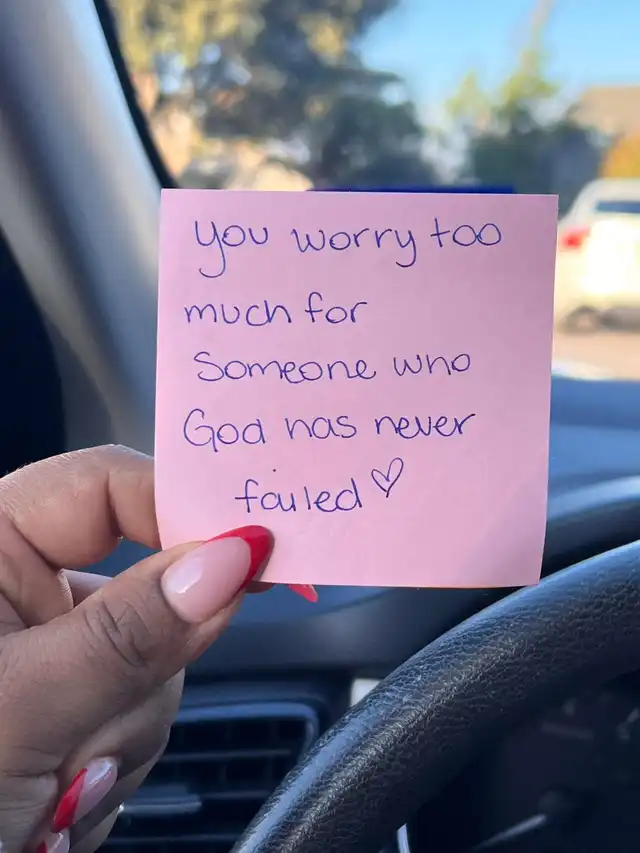 you worry too
much for
someone who
God has never
failed ♡